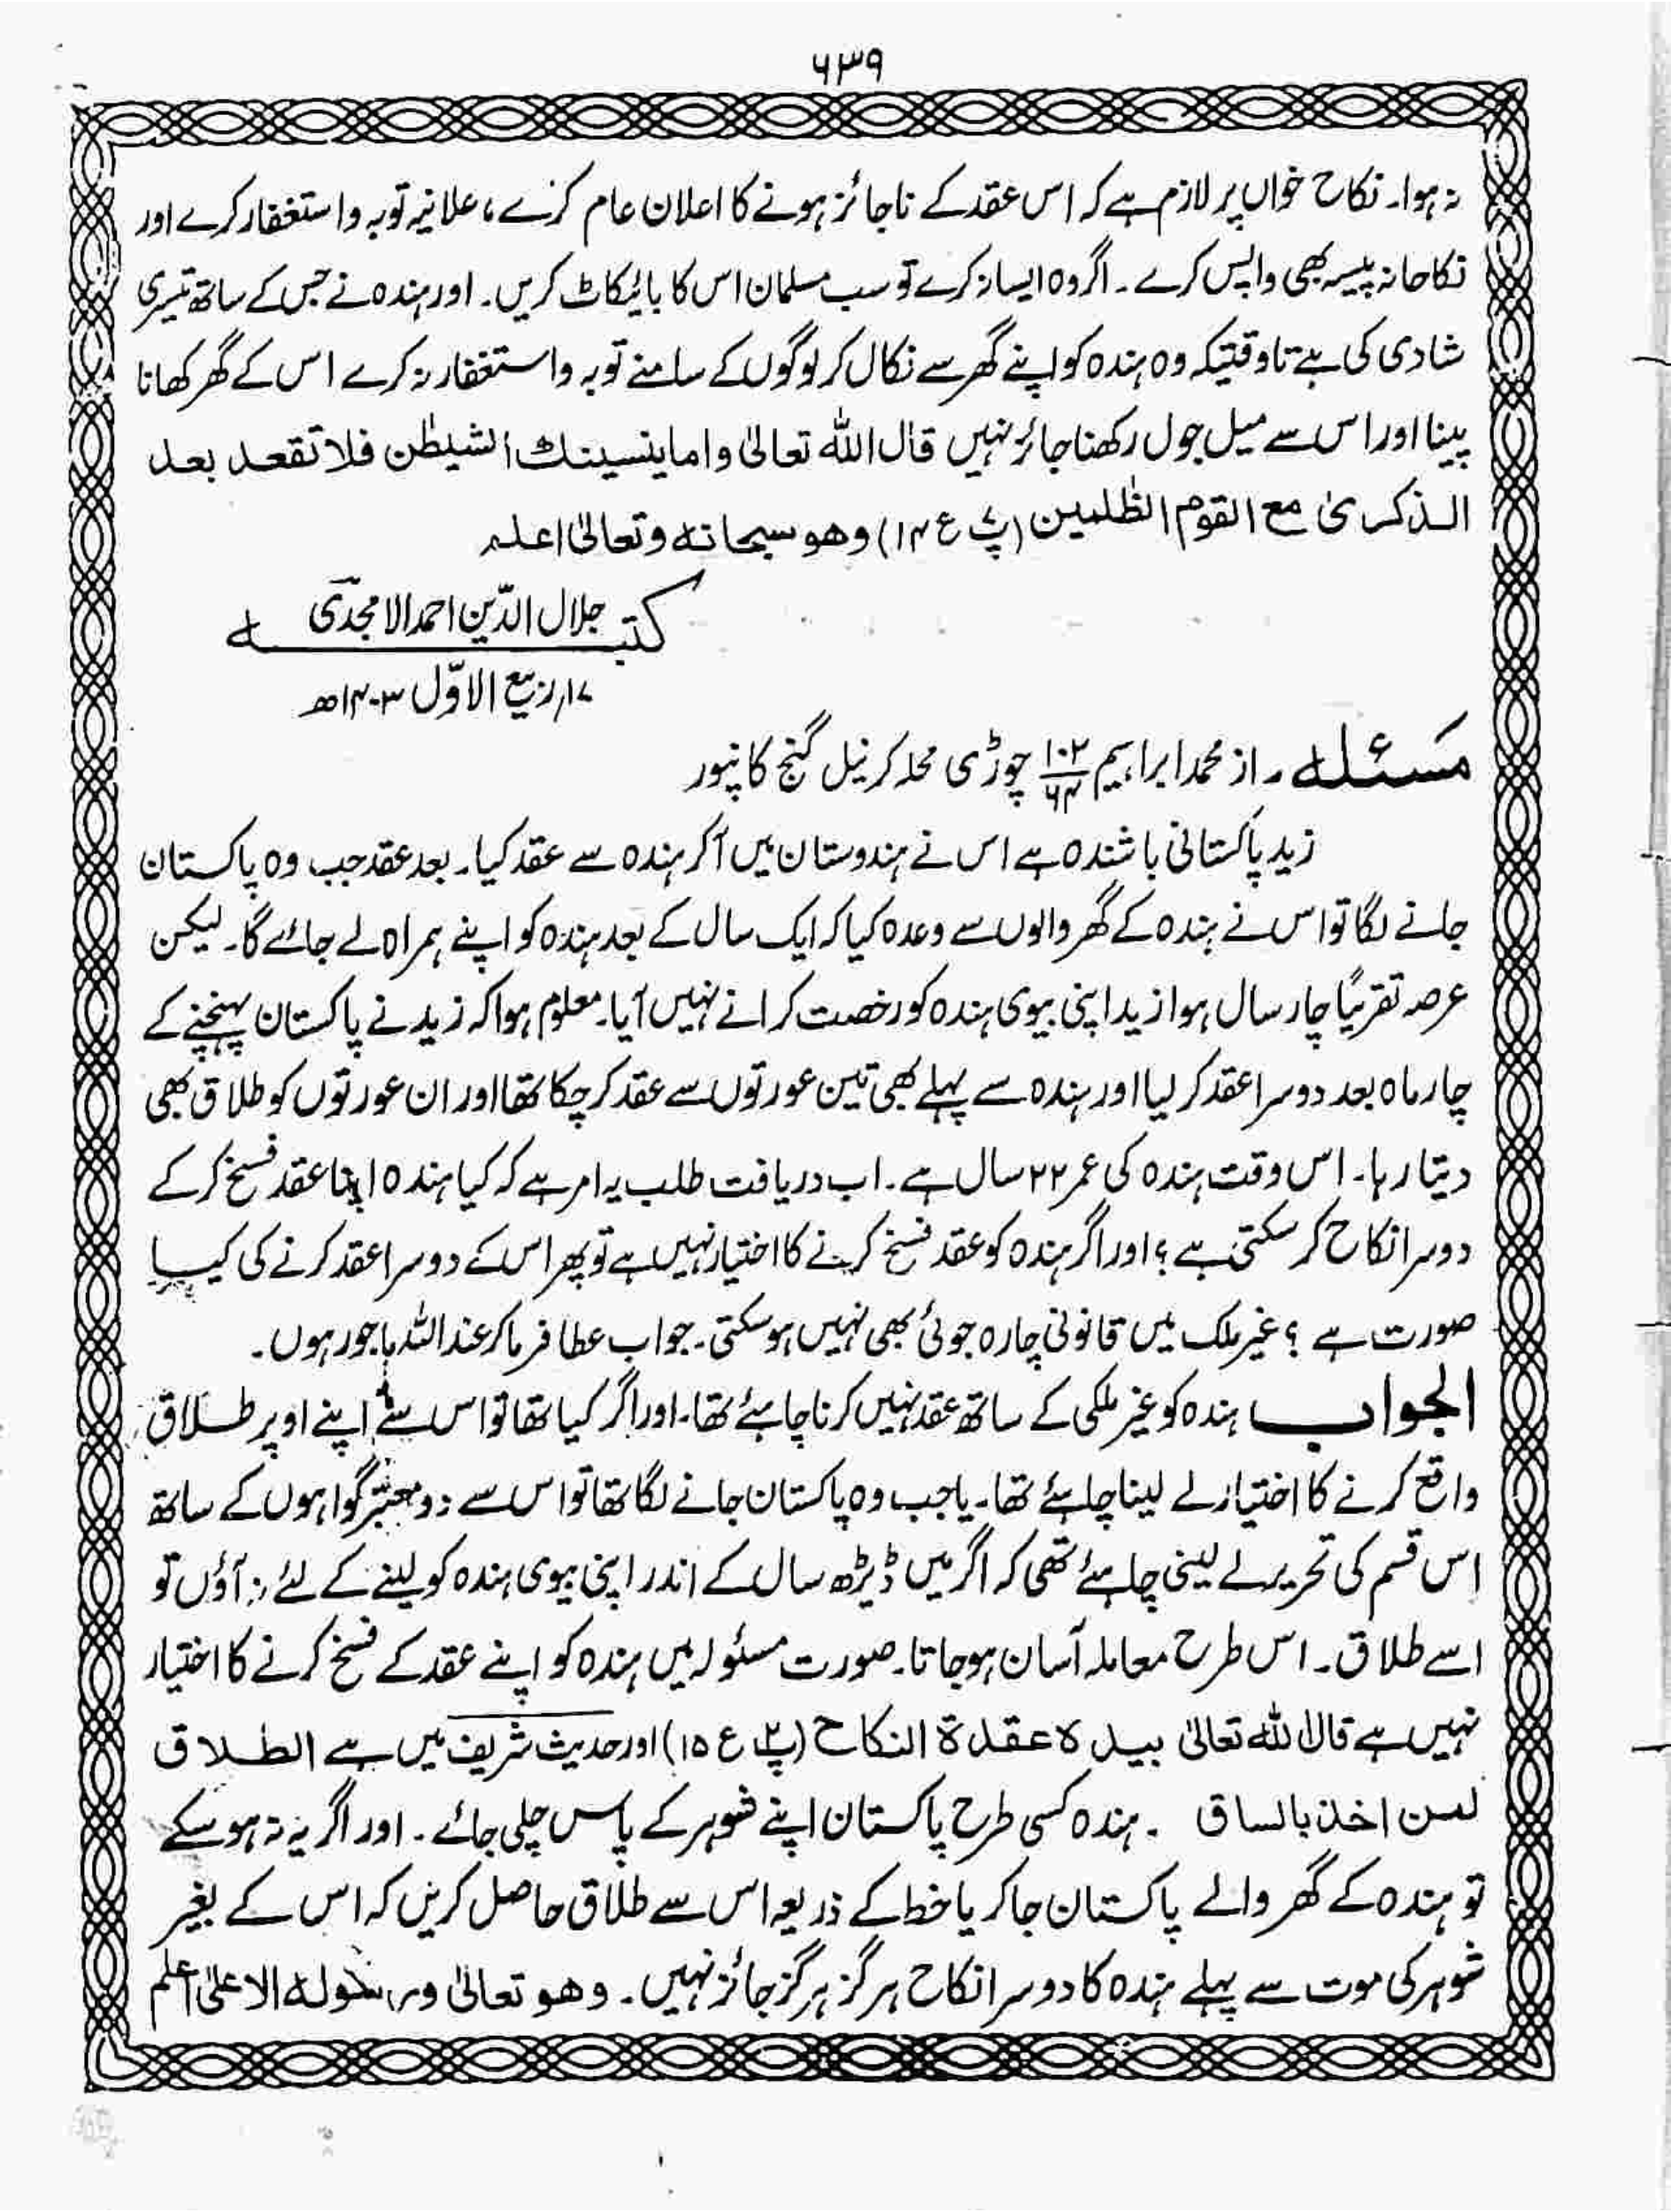 ۶۳۹
نہ ہوا۔ نکاح خواں پر لازم ہے کہ اس عقد کے ناجائز ہونے کا اعلان عام کرے، علانیہ توبہ و استغفار کرے اور
نکاحانہ پیسہ بھی واپس کرے ۔ اگر وہ ایسا نہ کرے تو سب مسلمان اس کا بائیکاٹ کریں۔ اور ہندہ نے جس کے ساتھ تیسری
شادی کی ہے تاوقتیکہ وہ ہندہ کو اپنے گھر سے نکال کر لوگوں کے سامنے توبہ و استغفار نہ کرے اس کے گھر کھانا
پینا اور اس سے میل جول رکھنا جائز نہیں قال اللہ تعالیٰ واما ینسینك الشیطٰن فلا تقعد بعد
الذکریٰ مع القوم الظٰلمین (پ۷ ع ۱۴) وھو سبحانہ وتعالیٰ اعلم
کتبہ جلال الدّین احمد الامجدی
۱۷؍ ربیع الاوّل ۱۴۰۳ھ
مسئلہ ۔ از محمد ابراہیم ۱۰۲/۶۴ چوڑی محلہ کرنیل گنج کانپور
زید پاکستانی باشندہ ہے اس نے ہندوستان میں آکر ہندہ سے عقد کیا۔ بعد عقد جب وہ پاکستان
جانے لگا تو اس نے ہندہ کے گھر والوں سے وعدہ کیا کہ ایک سال کے بعد ہندہ کو اپنے ہمراہ لے جائے گا۔ لیکن
عرصہ تقریبًا چار سال ہوا زید اپنی بیوی ہندہ کو رخصت کرانے نہیں آیا۔ معلوم ہوا کہ زید نے پاکستان پہنچنے کے
چار ماہ بعد دوسرا عقد کر لیا اور ہندہ سے پہلے بھی تین عورتوں سے عقد کر چکا تھا اور ان عورتوں کو طلاق بھی
دیتا رہا۔ اس وقت ہندہ کی عمر ۲۲ سال ہے ۔ اب دریافت طلب یہ امر ہے کہ کیا ہندہ اپنا عقد فسخ کر کے
دوسرا نکاح کر سکتی ہے ؟ اور اگر ہندہ کو عقد فسخ کرنے کا اختیار نہیں ہے تو پھر اس کے دوسرا عقد کرنے کی کیا
صورت ہے ؟ غیر ملک میں قانونی چارہ جوئی بھی نہیں ہو سکتی۔ جواب عطا فرما کر عند اللہ ماجور ہوں۔
الجواب ہندہ کو غیر ملکی کے ساتھ عقد نہیں کرنا چاہئے تھا۔ اور اگر کیا تھا تو اس سے اپنے اوپر طلاق
واقع کرنے کا اختیار لے لینا چاہئے تھا۔ یا جب وہ پاکستان جانے لگا تھا تو اس سے دو معتبر گواہوں کے ساتھ
اس قسم کی تحریر لے لینی چاہئے تھی کہ اگر میں ڈیڑھ سال کے اندر اپنی بیوی ہندہ کو لینے کے لئے نہ آؤں تو
اسے طلاق۔ اس طرح معاملہ آسان ہو جاتا۔ صورت مسئولہ میں ہندہ کو اپنے عقد کے فسخ کرنے کا اختیار
نہیں ہے قال اللہ تعالیٰ بیدہ عقدۃ النکاح (پ۲ ع ۱۵) اور حدیث شریف میں ہے الطلاق
لمن اخذ بالساق ۔ ہندہ کسی طرح پاکستان اپنے شوہر کے پاس چلی جائے ۔ اور اگر یہ نہ ہو سکے
تو ہندہ کے گھر والے پاکستان جا کر یا خط کے ذریعہ اس سے طلاق حاصل کریں کہ اس کے بغیر
شوہر کی موت سے پہلے ہندہ کا دوسرا نکاح ہرگز ہرگز جائز نہیں۔ وھو تعالیٰ ورسولہ الاعلیٰ اعلم